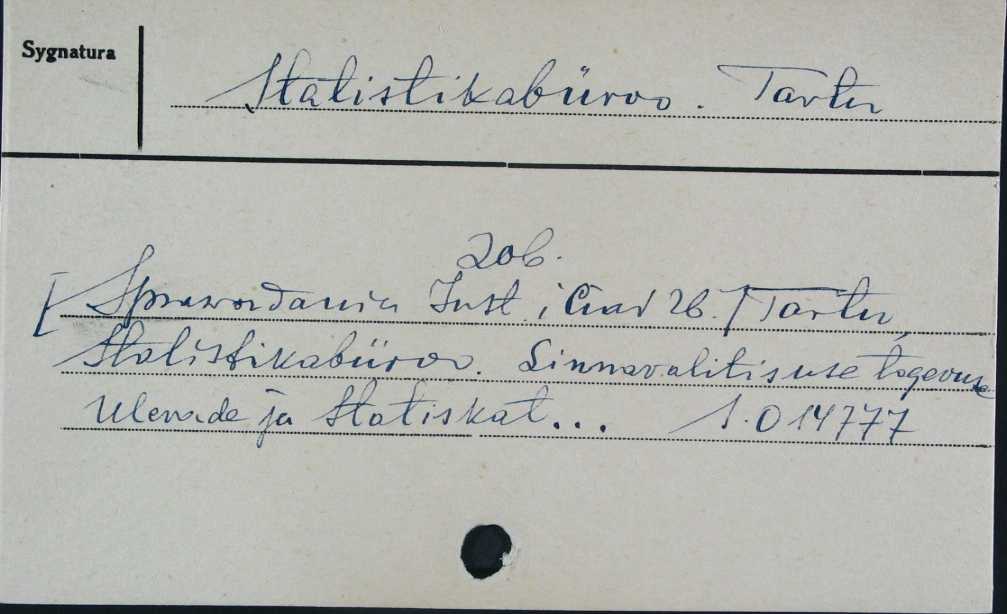 Sygnatura
Statistikabüroo. Tartu
Zob.
[Sprawozdania Inst. i Ciał Zb.] Tartu,
Statistikabüroo. Linnavalitisuse tegevuse
Ulevade ja Statiskat... S.014777